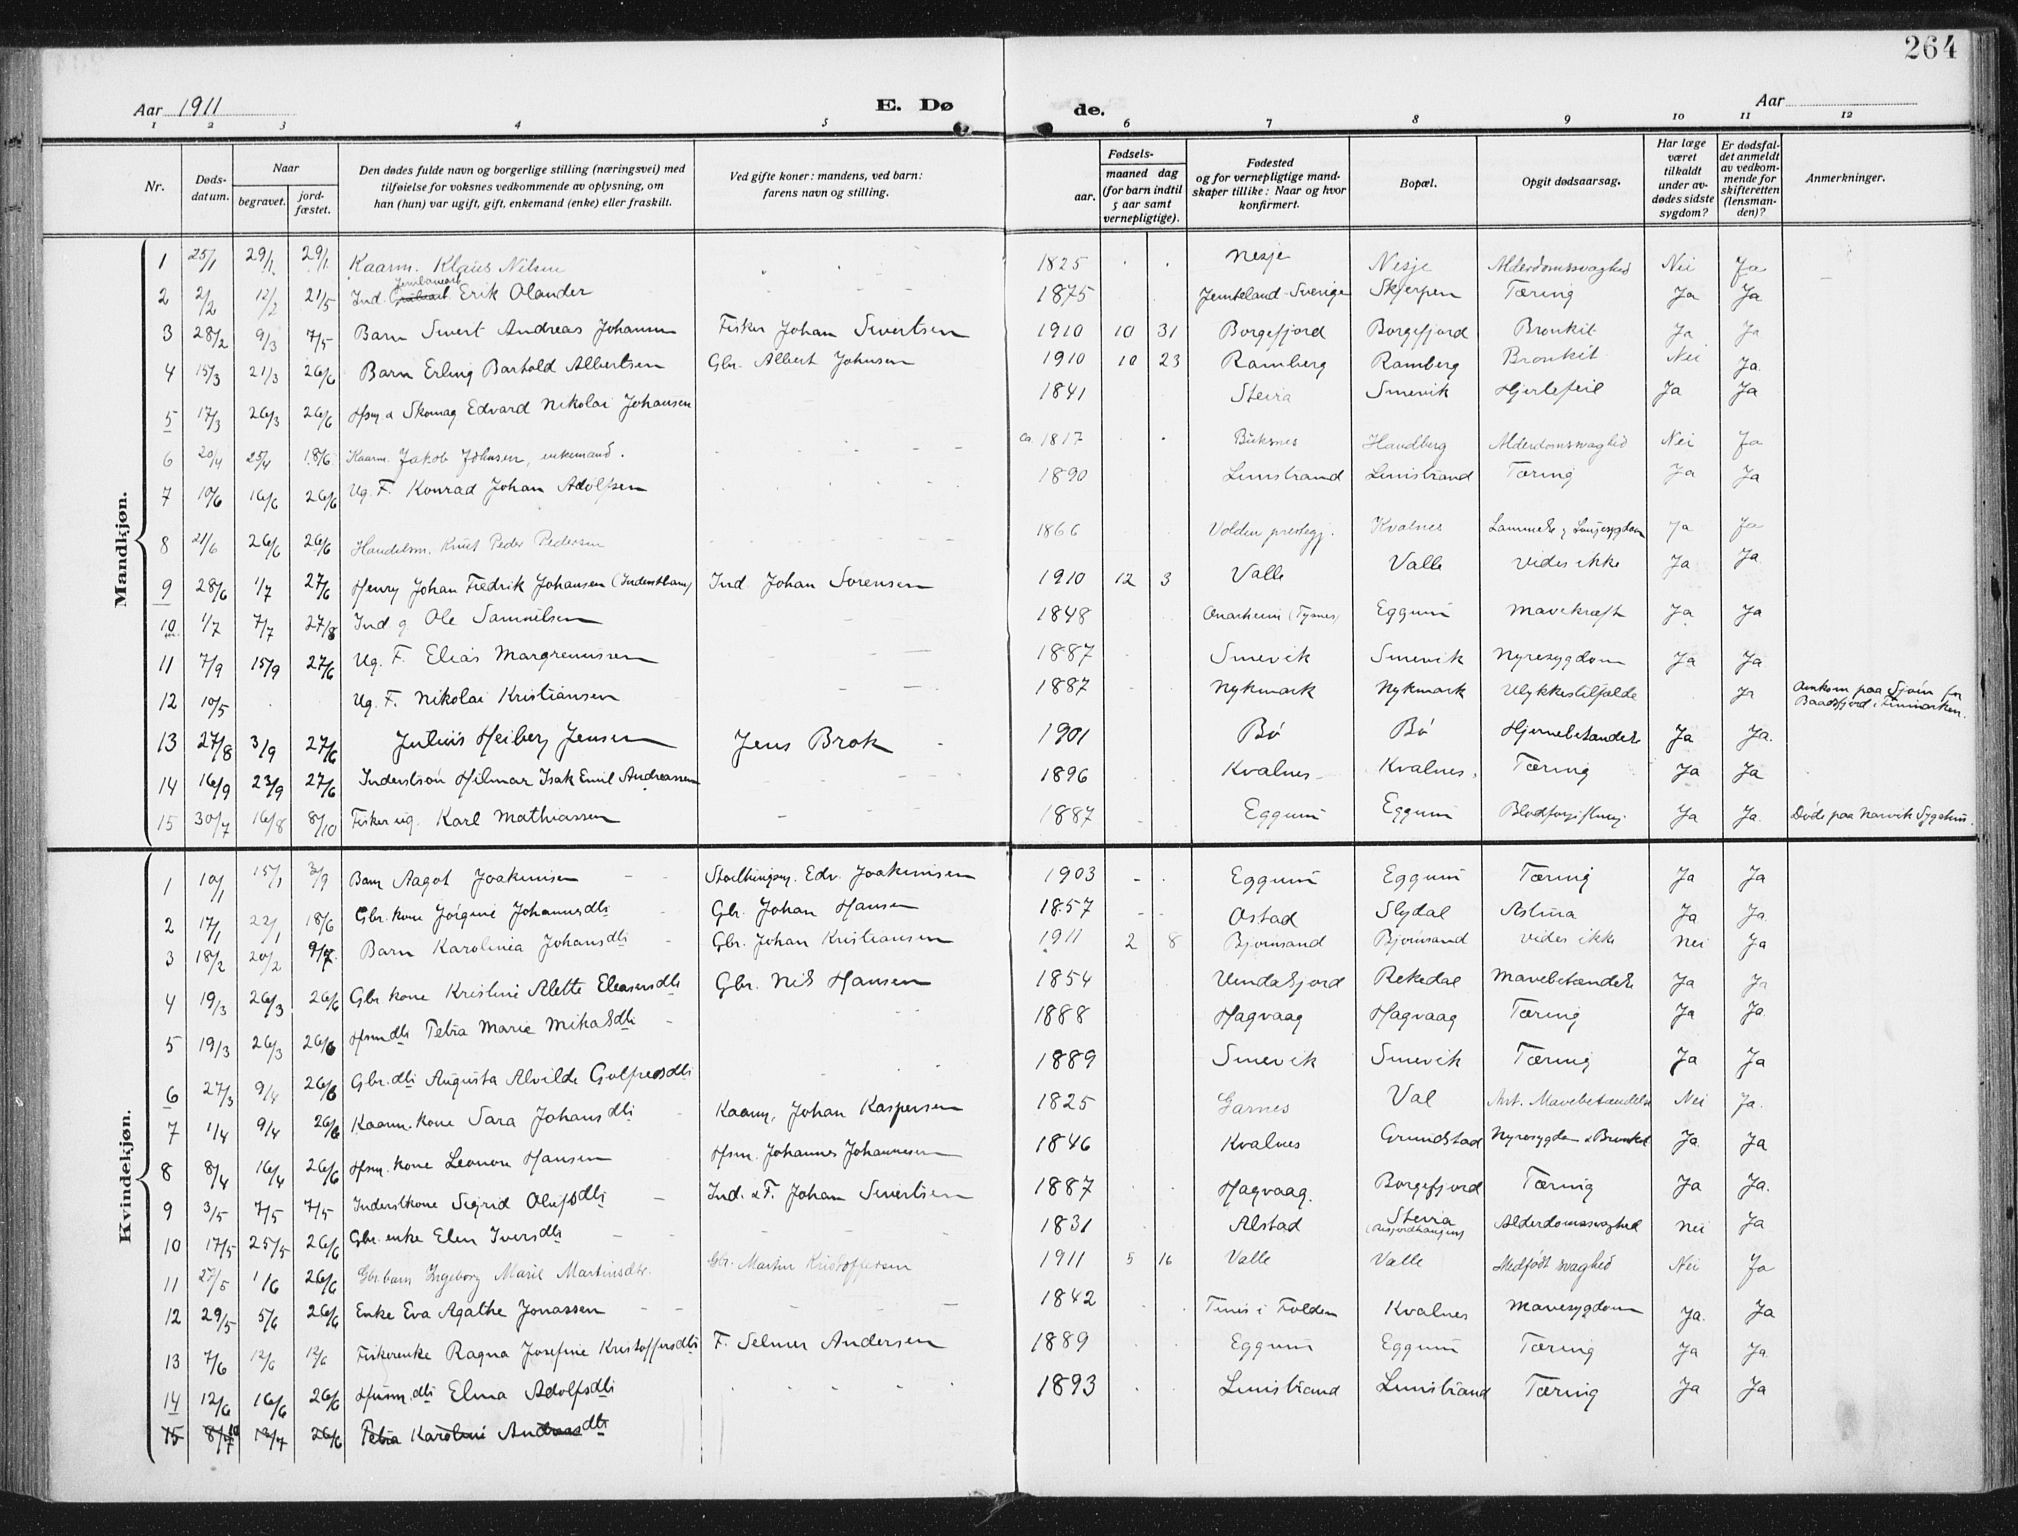 264
Aar 1911 E. Dø de. Aar
1 2 3 4 5 6 7 8 9 10 11 12
Nr. Dødsdatum. Naar begravet. jordfæstet. Den dødes fulde navn og borgerlige stilling (næringsvei) med tilføielse for voksnes vedkommende av oplysning, om han (hun) var ugift, gift, enkemand (enke) eller fraskilt. Ved gifte koner: mandens, ved barn: farens navn og stilling. Fødsels- aar. maaned dag (for barn indtil 5 aar samt vernepligtige). Fødested og for vernepligtige mandskaper tillike: Naar og hvor konfirmert. Bopæl. Opgit dødsaarsag. Har læge været tilkaldt under avdødes sidste sygdom? Er dødsfaldet anmeldt av vedkommende for skifteretten (lensmanden)? Anmerkninger.
Mandkjøn.
1 25/1 29/1 29/1 Kaarm. Klaus Nilsen 1825 Nesje Nesje Alderdomssvaghed Nei Ja
2 2/2 12/2 21/5 Ind. Jernbanearb. Erik Olander 1875 Jemteland-Sverige Skjerpen Tæring Ja Ja
3 28/2 9/3 7/5 Barn Sivert Andreas Johansen Fisker Johan Sivertsen 1910 10 31 Borgefjord Borgefjord Bronkit Ja Ja
4 15/3 21/3 26/6 Barn Erling Bartold Albertsen Gbr. Albert Johnsen 1910 10 23 Ramberg Ramberg Bronkit Nei Ja
5 17/3 26/3 26/6 Hsm & Skomag Edvard Nikolai Johansen 1841 Steira Smevik Hjertefeil Ja Ja
6 20/4 25/4 18/6 Kaarm. Jakob Johnsen, enkemand. ca. 1817 Buksnes Haudberg Alderdomssvaghed Nei Ja
7 10/6 16/6 26/6 Ug. F. Konrad Johan Adolfsen 1890 Limstrand Limstrand Tæring Ja Ja
8 21/6 26/6 26/6 Handelsm. Knut Peder Pedersen 1866 Volden prestegj. Kvalnes Lammelse & Lungesygdom Ja Ja
9 28/6 1/7 27/6 Henry Johan Fredrik Johansen (Inderstbarn) Ind. Johan Sørensen 1910 12 3 Valle Valle vides ikke Ja Ja
10 1/7 7/7 27/8 Ind g Ole Samuelsen 1848 Onarheim (Tysnes) Eggum Mavekræft Ja Ja
11 7/9 15/9 27/6 Ug. F. Elias Margrenussen 1887 Smevik Smevik Nyresygdom Ja Ja
12 10/5 Ug. F. Nikolai Kristiansen 1887 Nykmark Nykmark Ulykkestilfælde Ja Omkom paa Sjøen for Baadsfjord i Finmarken.
13 27/8 3/9 27/6 Julius Heiberg Jensen Jens Brok 1901 Bø Bø Hjernebetændelse Ja Ja.
14 16/9 23/9 27/6 Inderstsøn Hilmar Isak Emil Andreassen 1896 Kvalnes Kvalnes. Tæring Ja Ja
15 30/7 16/8 8/10 Fisker ug. Karl Mathiassen 1887 Eggum Eggum Blodforgiftning Ja Ja. Døde paa Narvik Sygehus.
Kvindekjøn.
1 10/1 15/1 3/9 Barn Aagot Joakimsen Edv. Joakimsen 1903 Eggum Eggum Tæring Ja Ja
2 17/1 22/1 18/6 Gbr. kone Jørgine Johannesdtr Gbr. Johan Hansen 1857 Ostad Slydal Astma Ja Ja
3 18/2 20/2 9/7 Barn Karolinia Johansdtr Gbr. Johan Kristiansen 1911 2 8 Bjørnsand Bjørnsand vides ikke Nei Ja
4 19/3 26/3 26/6 Gbr kone Kristine Alette Eleasersdtr Gbr. Nils Hansen 1854 Rekedal Mavebetændelse Ja Ja
5 19/3 26/3 26/6 Hsmdtr Petra Marie Mikalsdtr 1888 Hagvaag Hagvaag Tæring Ja Ja
6 27/3 9/4 26/6 Gbr.dtr Augusta Alvilde Golfredsdtr 1889 Smevik Smevik Tæring Ja Ja
7 1/4 9/4 26/6 Kaarm. kone Sara Johansdtr Kaarm. Johan Kaspersen 1825 Garnes Val Ant. Mavebetændelse Nei Ja.
8 8/4 16/4 26/6 Hsm. kone Leonore Hansen Hsm. Johannes Johannesen 1846 Kvalnes Grundstad Nyresygdom & Bronkit Ja Ja
9 3/5 7/5 7/5 Inderstkone Sigrid Olufsdtr Ind. & F. Johan Sivertsen 1887 Hagvaag. Borgefjord Tæring Ja Ja.
10 17/5 25/5 26/6 Gbr. enke Elen Iversdtr 1831 Alstad Steira Alderdomssvaghed Nei Ja
11 27/5 1/6 26/6 Gbr. barn Ingeborg Marie Martinsdtr. Gbr. Martin Kristoffersen 1911 5 16 Valle Valle Medfødt svaghed Nei Ja
12 29/5 5/6 26/6 Enke Eva Agathe Jonassen 1842 Tinis i Folden Kvalnes Mavesygdom Ja. Ja
13 7/6 12/6 12/6 Fiskerenke Ragna Josefine Kristoffersdtr F. Selmer Andersen 1889 Eggum Eggum Tæring Ja Ja
14 12/6 16/6 26/6 Husm.dtr Elma Adolfsdtr 1893 Limstrand Limstrand Tæring Ja Ja
15 8/7 12/7 26/6 Petra Karoline Andreasdtr